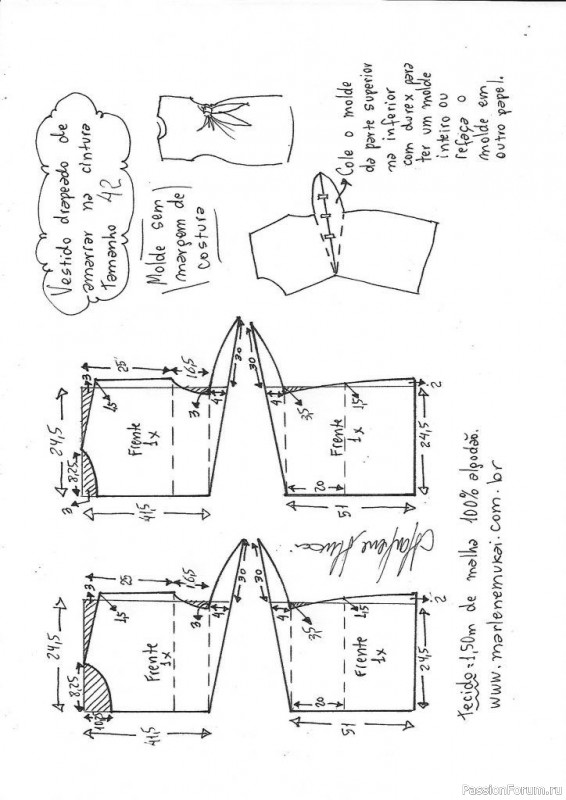 Vestido drapeado de
amarrar na cintura
Tamanho 42
Molde sem
margem de
costura
Cole o molde
da parte superior
na inferior
com durex para
ter um molde
inteiro ou
refaça o
molde em
outro papel.
3
25
16,5
24,5
8,25
3
1,5
Frente
1x
3
4
30
41,5
30
4
3,5
1,5
2
Frente
1x
20
24,5
51
3
25
16,5
24,5
8,25
10,25
1,5
Frente
1x
3
4
30
41,5
30
4
3,5
1,5
2
Frente
1x
20
24,5
51
Marlene Mukai
Tecido = 1,50m de malha 100% algodão.
www.marlenemukai.com.br
PassionForum.ru